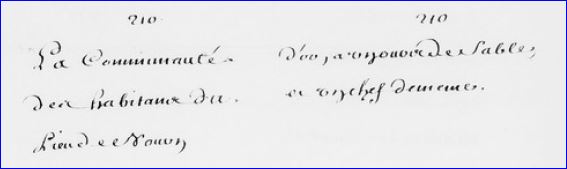 210
La Communauté
des habitans du
Lieu de
210
D'or, a un Sable,
et un chef de meme.